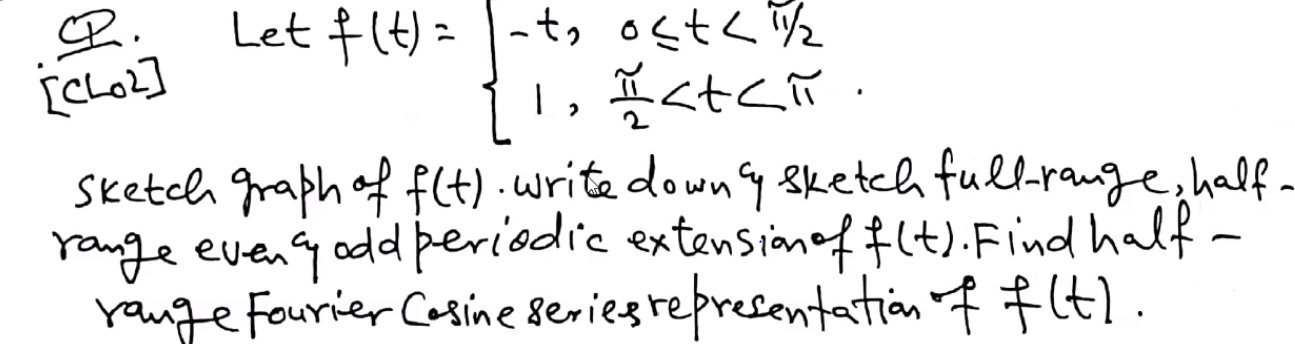 CP. Let f(t) = { -t, 0≤t<π/2
[CLO2] 1, π/2<t<π.
Sketch graph of f(t). write down & sketch full-range, half-
range even & odd periodic extension of f(t). Find half-
range Fourier Cosine series representation of f(t).